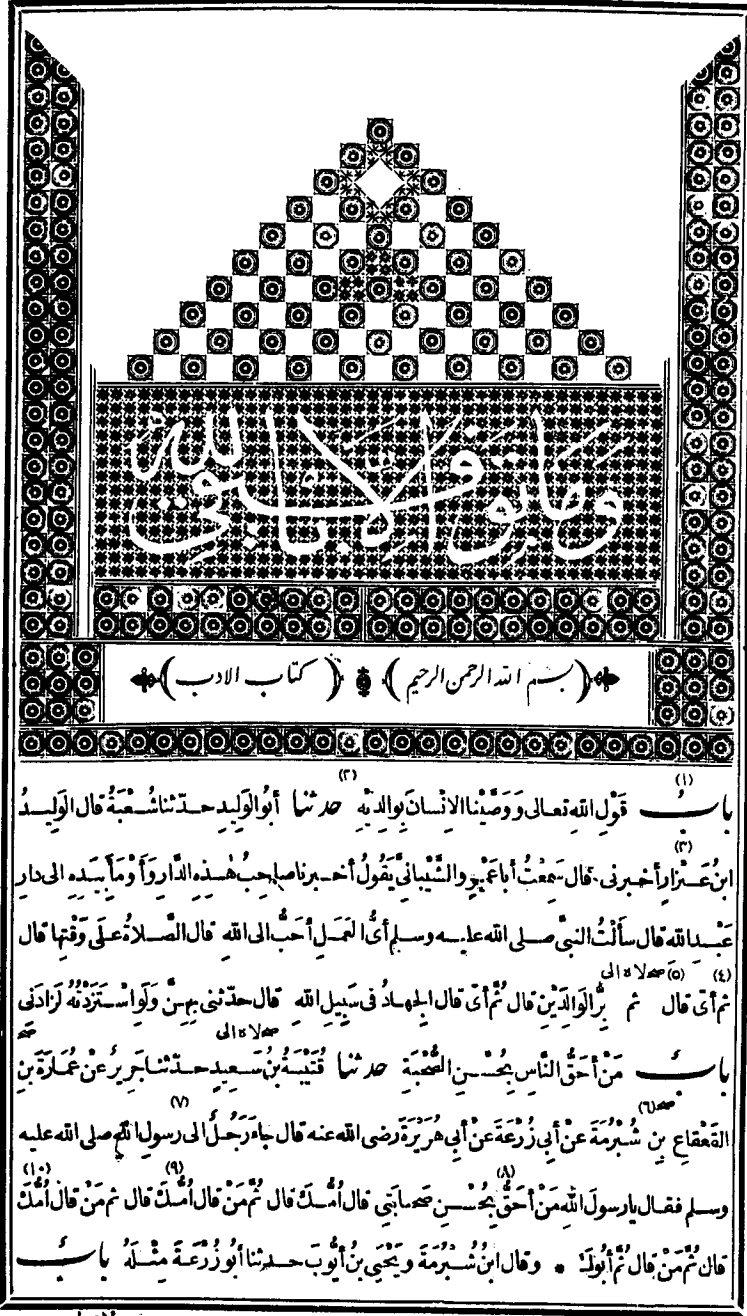 وما توفيقي الا بالله
(بسم الله الرحمن الرحيم) (كتاب الادب)
(١) (٢)
بابُ قَوْلِ اللهِ تعالى وَوَصَّيْنا الانْسانَ بِوالِدَيْهِ حدثنا أبُو الوَلِيدِ حدّثنا شُعْبَةُ قال الوَلِيدُ
(٣)
ابنُ عَيْزارٍ أخبرنى قال سَمِعْتُ أبا عَمْرٍو الشَّيْبانىَّ يَقُولُ أخبرنا صاحِبُ هٰذِه الدَّارِ وَأَوْمَأَ بِيَدِه الى دارِ
عَبْدِ الله قال سَأَلْتُ النبىَّ صلى الله عليه وسلم أىُّ العَمَلِ أحَبُّ الى اللهِ قال الصَّلاةُ عَلَى وَقْتِها قال
(٤) (٥) صه لاه الى
ثم أىّ قال ثم بِرُّ الوَالِدَيْنِ قال ثُمَّ أىّ قال الجِهادُ فى سَبِيلِ اللهِ قال حدّثنى بِهِنَّ وَلَوِ اسْتَزَدْتُهُ لَزادَنى
صه لاه الى صه
بابُ مَنْ أحَقُّ النَّاسِ بِحُسْنِ الصُّحْبَةِ حدثنا قُتَيْبَةُ بنُ سَعِيدٍ حدّثنا جَرِيرٌ عَنْ عُمَارَةَ بنِ
صه (٦) (٧)
القَعْقاعِ بنِ شُبْرُمَةَ عَنْ أبى زُرْعَةَ عَنْ أبى هُرَيْرَةَ رضى الله عنه قال جاءَ رَجُلٌ الى رسولِ اللهِ صلى الله عليه
(٨) (٩) (١٠)
وسلم فقال يا رسولَ اللهِ مَنْ أحَقُّ بِحُسْنِ صَحابَتِى قال أُمُّكَ قال ثُمَّ مَنْ قال أُمُّكَ قال ثم مَنْ قال أُمُّكَ
قال ثُمَّ مَنْ قال ثُمَّ أبُوكَ * وقال ابنُ شُبْرُمَةَ ويَحْيَى بنُ أيُّوبَ حدثنا أبُو زُرْعَةَ مِثْلَهُ بابُ